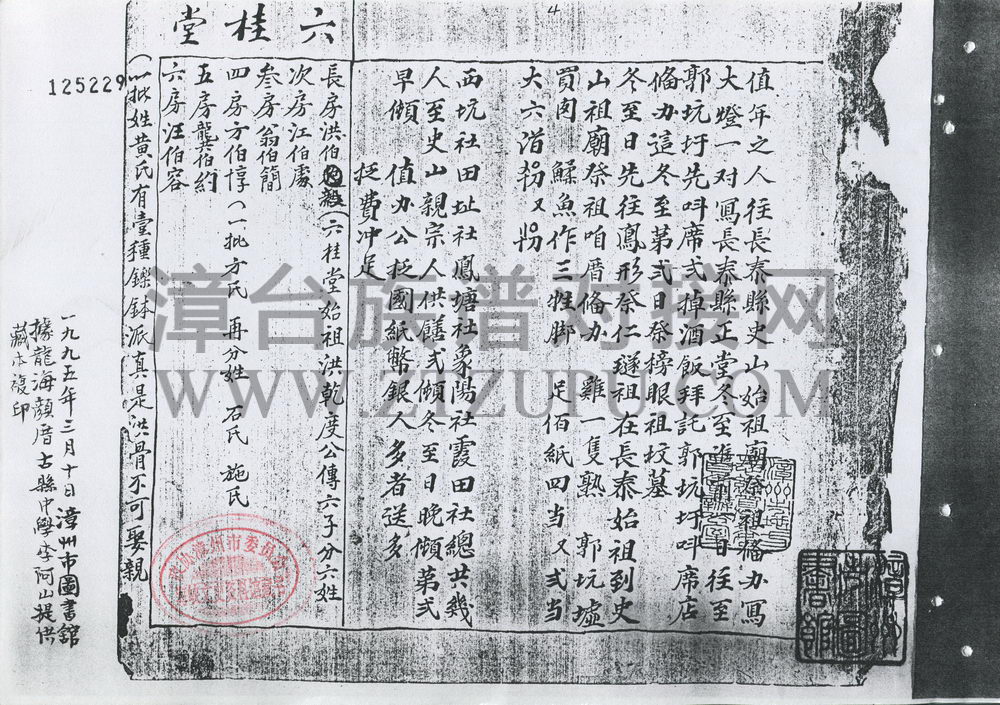 六桂堂
4
值年之人往長泰縣史山始祖廟祭祖俻办寫
大燈一对寫長泰縣正堂冬至進日往至
郭坑圩先呌席弍掉酒飯拜託郭坑圩呌席店
俻办這冬至第弍日祭榜眼祖坟墓
冬至日先往鳳形祭仁璲祖在長泰始祖到史
山祖廟祭祖咱厝俻办 雞一隻熟 郭坑墟
買肉 鰇魚作三牲脚 足佰紙四当又弍当
大六
西坑社田址社鳳塘社象陽社霞田社總共幾
人至史山親宗人供饍弍傾冬至日晚傾第弍
早傾 值办公抾國紙幣銀人多者送多
抾費冲足
長房洪伯毅(六桂堂始祖洪乾度公傳六子分六姓
次房江伯處
叁房翁伯簡
四房方伯惇(一批方氏 再分姓 石氏 施氏
五房龔伯約
六房汪伯容
(一批姓黄氏有壹種鑠鉢派真是洪骨不可娶親
125229
一九九五年三月十日漳州市圖書舘
據龍海顏厝古縣中學李阿山提供
藏本複印
漳州市委員會
漳州圖書館
漳台族谱对接网
WWW.ZTZUPU.COM